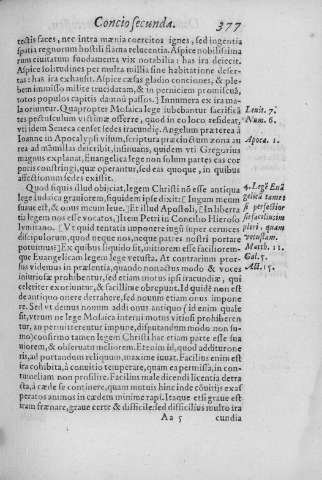 Concio secunda. 377
tectis faces, nec intra mœnia coercitos ignes, sed ingentia
spatia regnorum hostili flama relucentia. Aspice nobilissima
rum ciuitatum fundamenta vix notabilia: has ira deiecit.
Aspice solitudines per multa millia sine habitatione deser-
tas: has ira exhausit. Aspice cæsas gladio conciones, & ple-
bem immisso milite trucidatam, & in perniciem promiscuā,
totos populos capitis damno passos.] Innumera ex ira ma-
la oriuntur. Quapropter Mosaica lege iubebantur sacrificā
tes pectusculum victimæ offerre, quod in eo loco resideat,
vti idem Seneca censet sedes iracundię. Angelum præterea à
Ioanne in Apocalypsi visum, scriptura præcinctum zona au
rea ad mamillas deicribit, insinuans, quidem vti Gregorius
magnus explanat, Euangelica lege non solum partes eas cor
poris constringi, quæ operantur, sed eas quoque, in quibus
affectionum sedes exsistit.
Leuit. 7.
Num. 6.
Apoca. 1.
Quod siquis illud obijciat, legem Christi nō esse antiqua
lege Iudaica grauiorem, siquidem ipse dixit: [Iugum meum
suaue est, & onus meum leue.] Et illud Apostoli, [In liberta
tis legem nos esse vocatos,] Item Petri in Concilio Hieroso
lymitano. [Vt quid tentatis imponere iugū super ceruices
discipulorum, quod neque nos, neque patres nostri portare
potuimus:] Ex quibus liquido sit, mitiorem esse faciliorem-
que Euangelicam legem lege vetusta. At contrarium pror-
sus videmus in præsentia, quando non actus modo & voces
iniuriosæ prohibentur, sed etiam motus ipsi iracundiæ, qui
celeriter exoriuntur, & facillime obrepunt. Id quidē non est
de antiquo onere detrahere, sed nouum etiam onus impone
re. Sed vt demus nonum addi onus antiquo (id enim quale
sit, vtrum ne lege Mosaica interni motus vitiosi prohiberen
tur, an permitterentur impune, disputandum modo non su-
mo) confirmo tamen legem Christi hac etiam parte esse sua
uiorem, & obseruatu meliorem. Etenim id, quod additur one
ris, ad portandum reliquum, maxime iuuat. Facilius enim est
ira cohibita, à conuitio temperate, quam ea permissa, in con-
tumeliam non prosilire. Facilius male dicendi licentia detra
cta, à cæde se continere, quam mutuis hinc inde cōuitiis exas
peratos animos in cædem minime rapi. Itaque etsi graue est
iram frænare, graue certe & difficile: sed difficilius multo ira
4. Legē Euā
gelicā tamet
si perfectior
sit facilius im
pleri, quam
vetustam.
Matth. 11.
Gal. 5.
Act. 15.
Aa 5 cundia